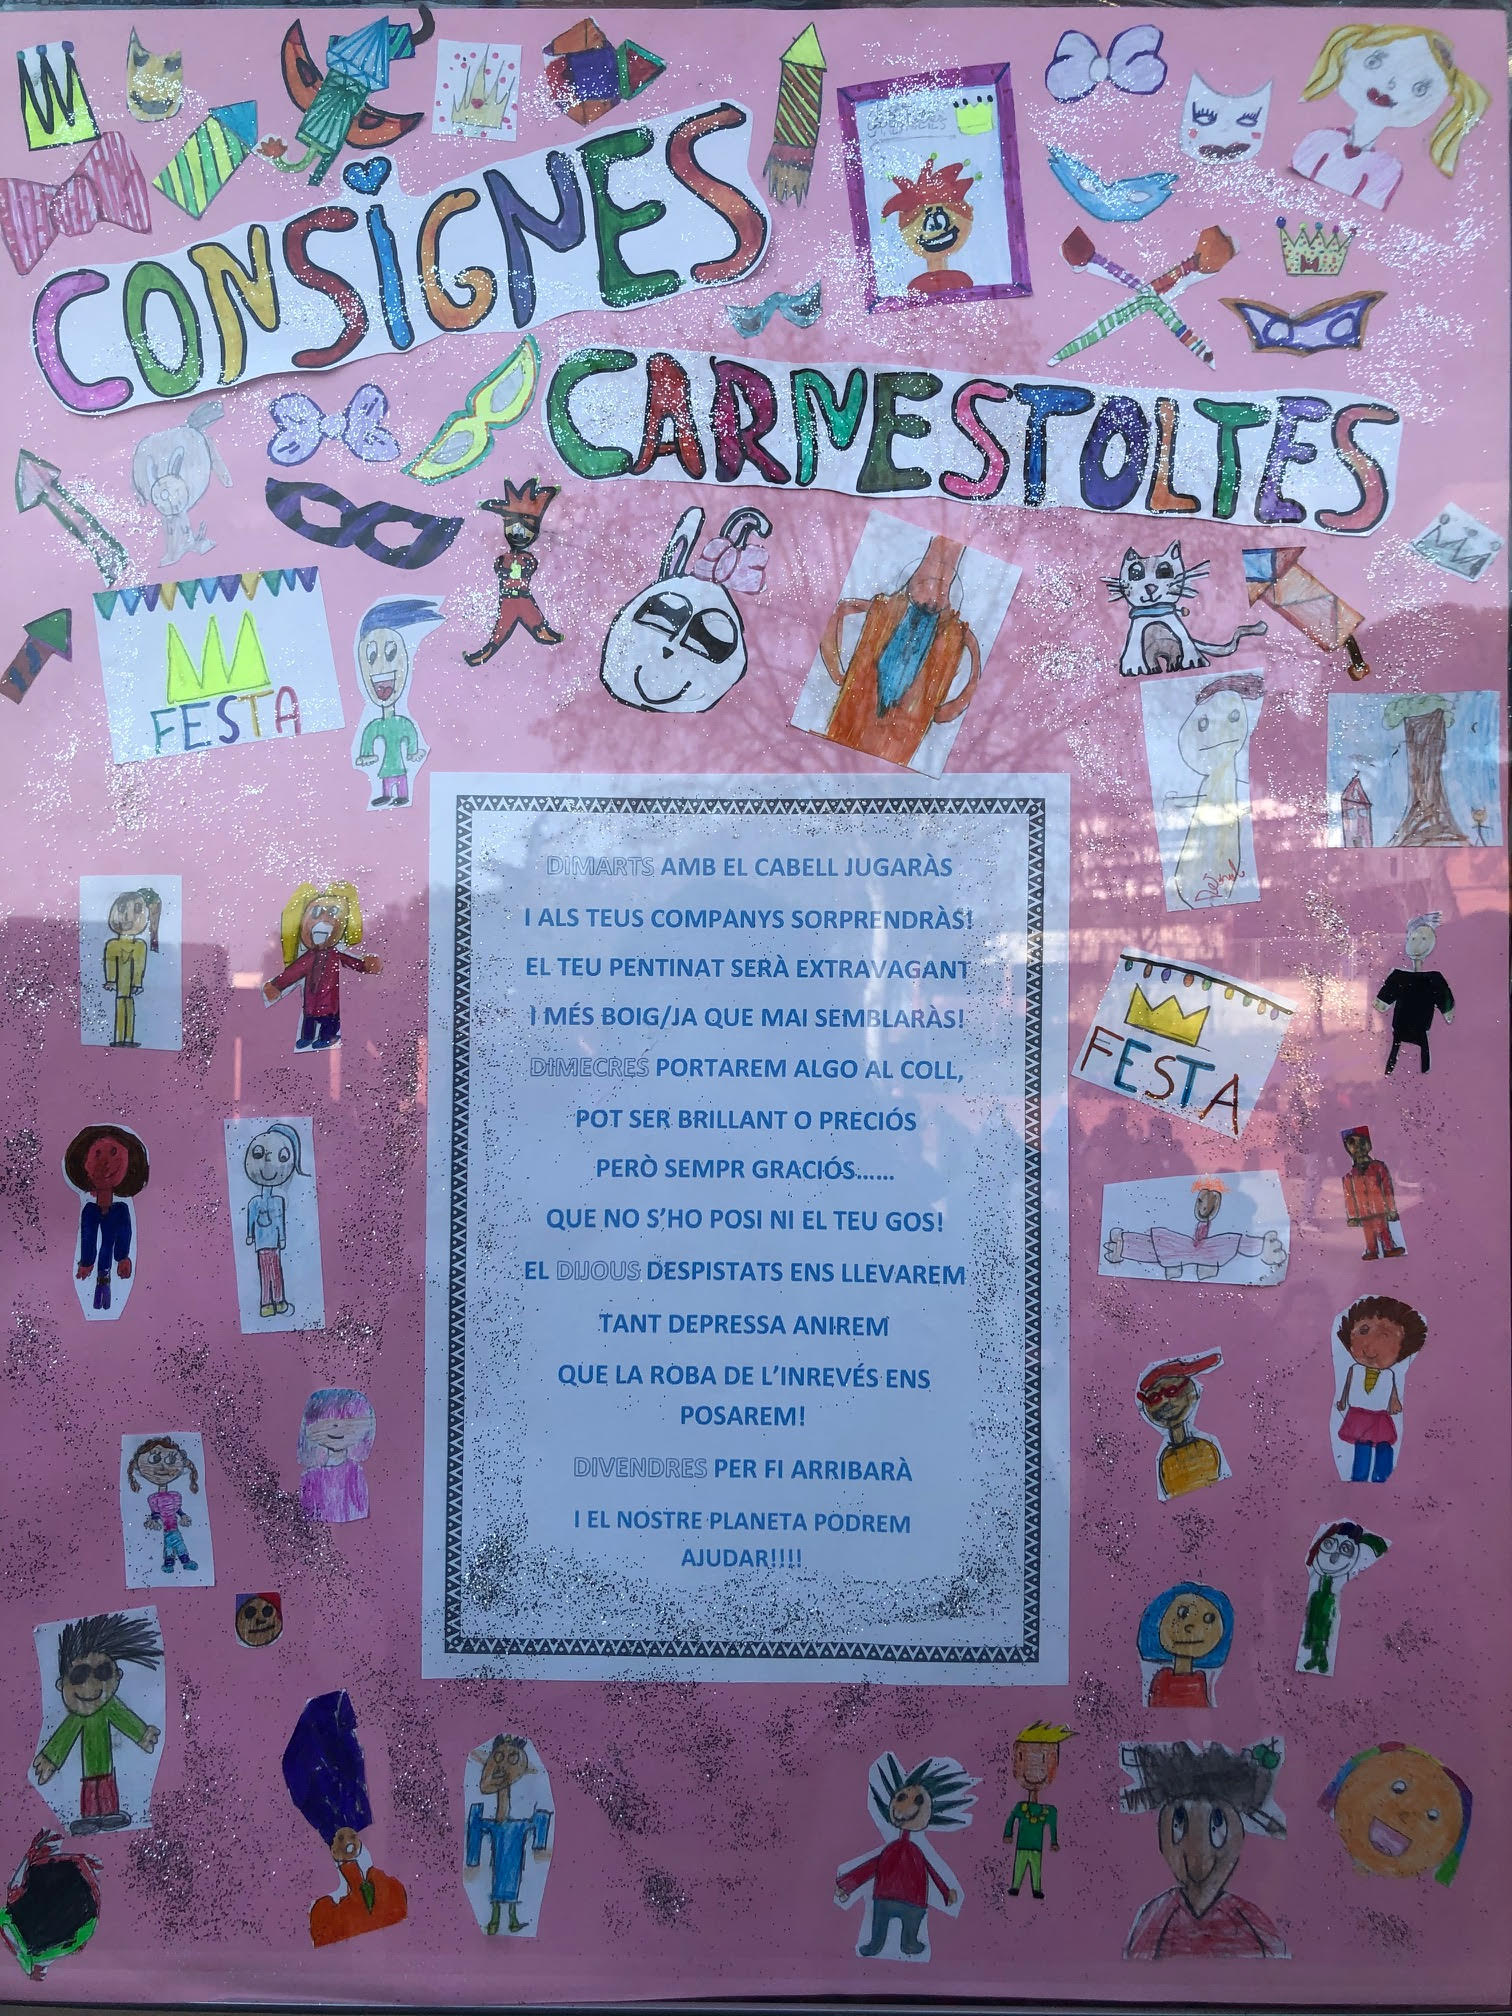 CONSIGNES
CARNESTOLTES
FESTA
DIMARTS AMB EL CABELL JUGARÀS
I ALS TEUS COMPANYS SORPRENDRÀS!
EL TEU PENTINAT SERÀ EXTRAVAGANT
I MÉS BOIG/JA QUE MAI SEMBLARÀS!
DIMECRES PORTAREM ALGO AL COLL,
POT SER BRILLANT O PRECIÓS
PERÒ SEMPR GRACIÓS......
QUE NO S'HO POSI NI EL TEU GOS!
EL DIJOUS DESPISTATS ENS LLEVAREM
TANT DEPRESSA ANIREM
QUE LA ROBA DE L'INREVÉS ENS
POSAREM!
DIVENDRES PER FI ARRIBARÀ
I EL NOSTRE PLANETA PODREM
AJUDAR!!!!
FESTA